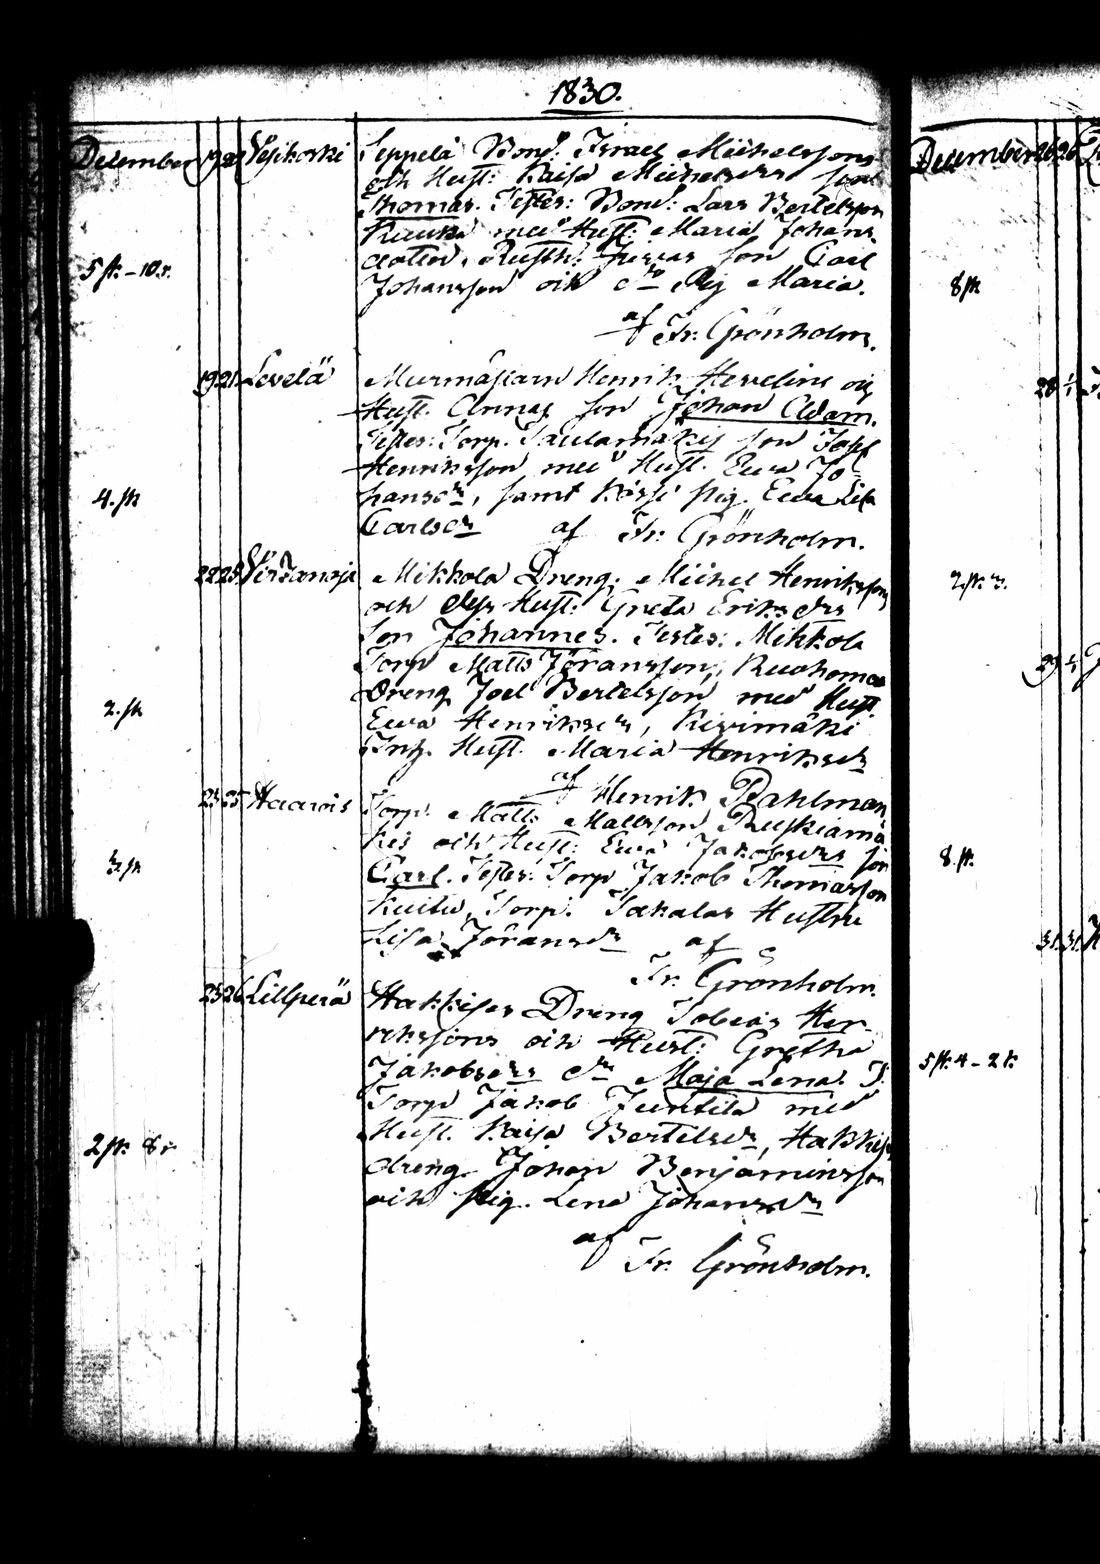 1830.
December 19 20 Vesikoski Seppelä Bond. Israel Michelssons
och Hust: Kaisa Michelsdrs son
Thomas. Testes: Bond: Lars Bertelsson
med Hust: Maria Johans
dotter, Rusth: son Carl
5 st. - 10 r.
Johansson och Pig Maria.
af Fr: Grönholm.
19 21. Levelä Murmästarn Henrik Hevelins och
Hust. Annas son Johan Adam.
Testes: Torp. son Josef
Henriksson med Hust. Eva Jo-
hansdr, samt Pig. Eva Lisa
4. st
Carlsdr af Fr. Grönholm.
22 25 Virtanoja Mikkola Dreng. Michel Henrikssons
och dess Hust: Greta Eriksdrs
son Johannes. Testes: Mikkola
Torp Matts Jöransson,
Dreng Joel Bertelsson med Hust.
2. st
Eva Henriksdr, Kivimäki
Inh. Hust. Maria Henriksdr
af Henrik Dahlman
23 25 Haarois Torp. Matts Mattsson Ruskiamä
kis och Hust: Eva Jakobsdrs son
3. st
Carl. Testes: Torp Jakob Thomasson
Kuitu, Torp. Hustru
Lisa Jöransdr af
Fr. Grönholm.
25 26 Lillperä Hakkisos Dreng Tobias Hen-
rikssons och Hust: Gretha
Jakobsdrs dr Maja Lena. T.
Torp Jakob Junttila med
Hust. Kaisa Bertelsdr,
2 st. 8 r
dreng Johan Benjaminsson
och pig. Lena Johansdr
af
Fr. Grönholm.
December 26 26
8 st
28
2 st. 3.
29
8. st.
31. 31.
5 st. 4 - 2 k.